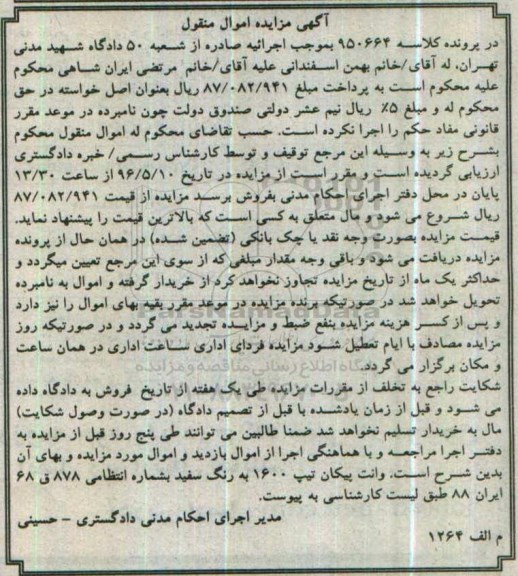 آگهی مزایده اموال منقول
در پرونده کلاسه ۹۵۰۶۶۴ بموجب اجرائیه صادره از شعبه ۵۰ دادگاه شهید مدنی
تهران، له آقای/خانم بهمن اسفندانی علیه آقای/خانم مرتضی ایران شاهی محکوم
علیه محکوم است به پرداخت مبلغ ۸۷/۰۸۲/۹۴۱ ریال بعنوان اصل خواسته در حق
محکوم له و مبلغ ۵٪ ریال نیم عشر دولتی صندوق دولت چون نامبرده در موعد مقرر
قانونی مفاد حکم را اجرا نکرده است. حسب تقاضای محکوم له اموال منقول محکوم
بشرح زیر به وسیله این مرجع توقیف و توسط کارشناس رسمی/ خبره دادگستری
ارزیابی گردیده است و مقرر است از مزایده در تاریخ ۹۶/۵/۱۰ از ساعت ۱۳/۳۰
پایان در محل دفتر اجرای احکام مدنی بفروش برسد مزایده از قیمت ۸۷/۰۸۲/۹۴۱
ریال شروع می شود و مال متعلق به کسی است که بالاترین قیمت را پیشنهاد نماید.
قیمت مزایده بصورت وجه نقد یا چک بانکی (تضمین شده) در همان حال از پرونده
مزایده دریافت می شود و باقی وجه مقدار مبلغی که از سوی این مرجع تعیین میگردد و
حداکثر یک ماه از تاریخ مزایده تجاوز نخواهد کرد از خریدار گرفته و اموال به نامبرده
تحویل خواهد شد در صورتیکه برنده مزایده در موعد مقرر بقیه بهای اموال را نیز دارد
و پس از کسر هزینه مزایده بنفع ضبط و مزایده تجدید می گردد و در صورتیکه روز
مزایده مصادف با ایام تعطیل شود مزایده فردای اداری ساعت اداری در همان ساعت
و مکان برگزار می گردد.
شکایت راجع به تخلف از مقررات مزایده طی یک هفته از تاریخ فروش به دادگاه داده
می شود و قبل از زمان یادشده با قبل از تصمیم دادگاه (در صورت وصول شکایت)
مال به خریدار تسلیم نخواهد شد ضمنا طالبین می توانند طی پنج روز قبل از مزایده به
دفتر اجرا مراجعه و با هماهنگی اجرا از اموال بازدید و اموال مورد مزایده و بهای آن
بدین شرح است. وانت پیکان تیپ ۱۶۰۰ به رنگ سفید بشماره انتظامی ۸۷۸ ق ۶۸
ایران ۸۸ طبق لیست کارشناسی به پیوست.
مدیر اجرای احکام مدنی دادگستری – حسینی
م الف ۱۲۶۴